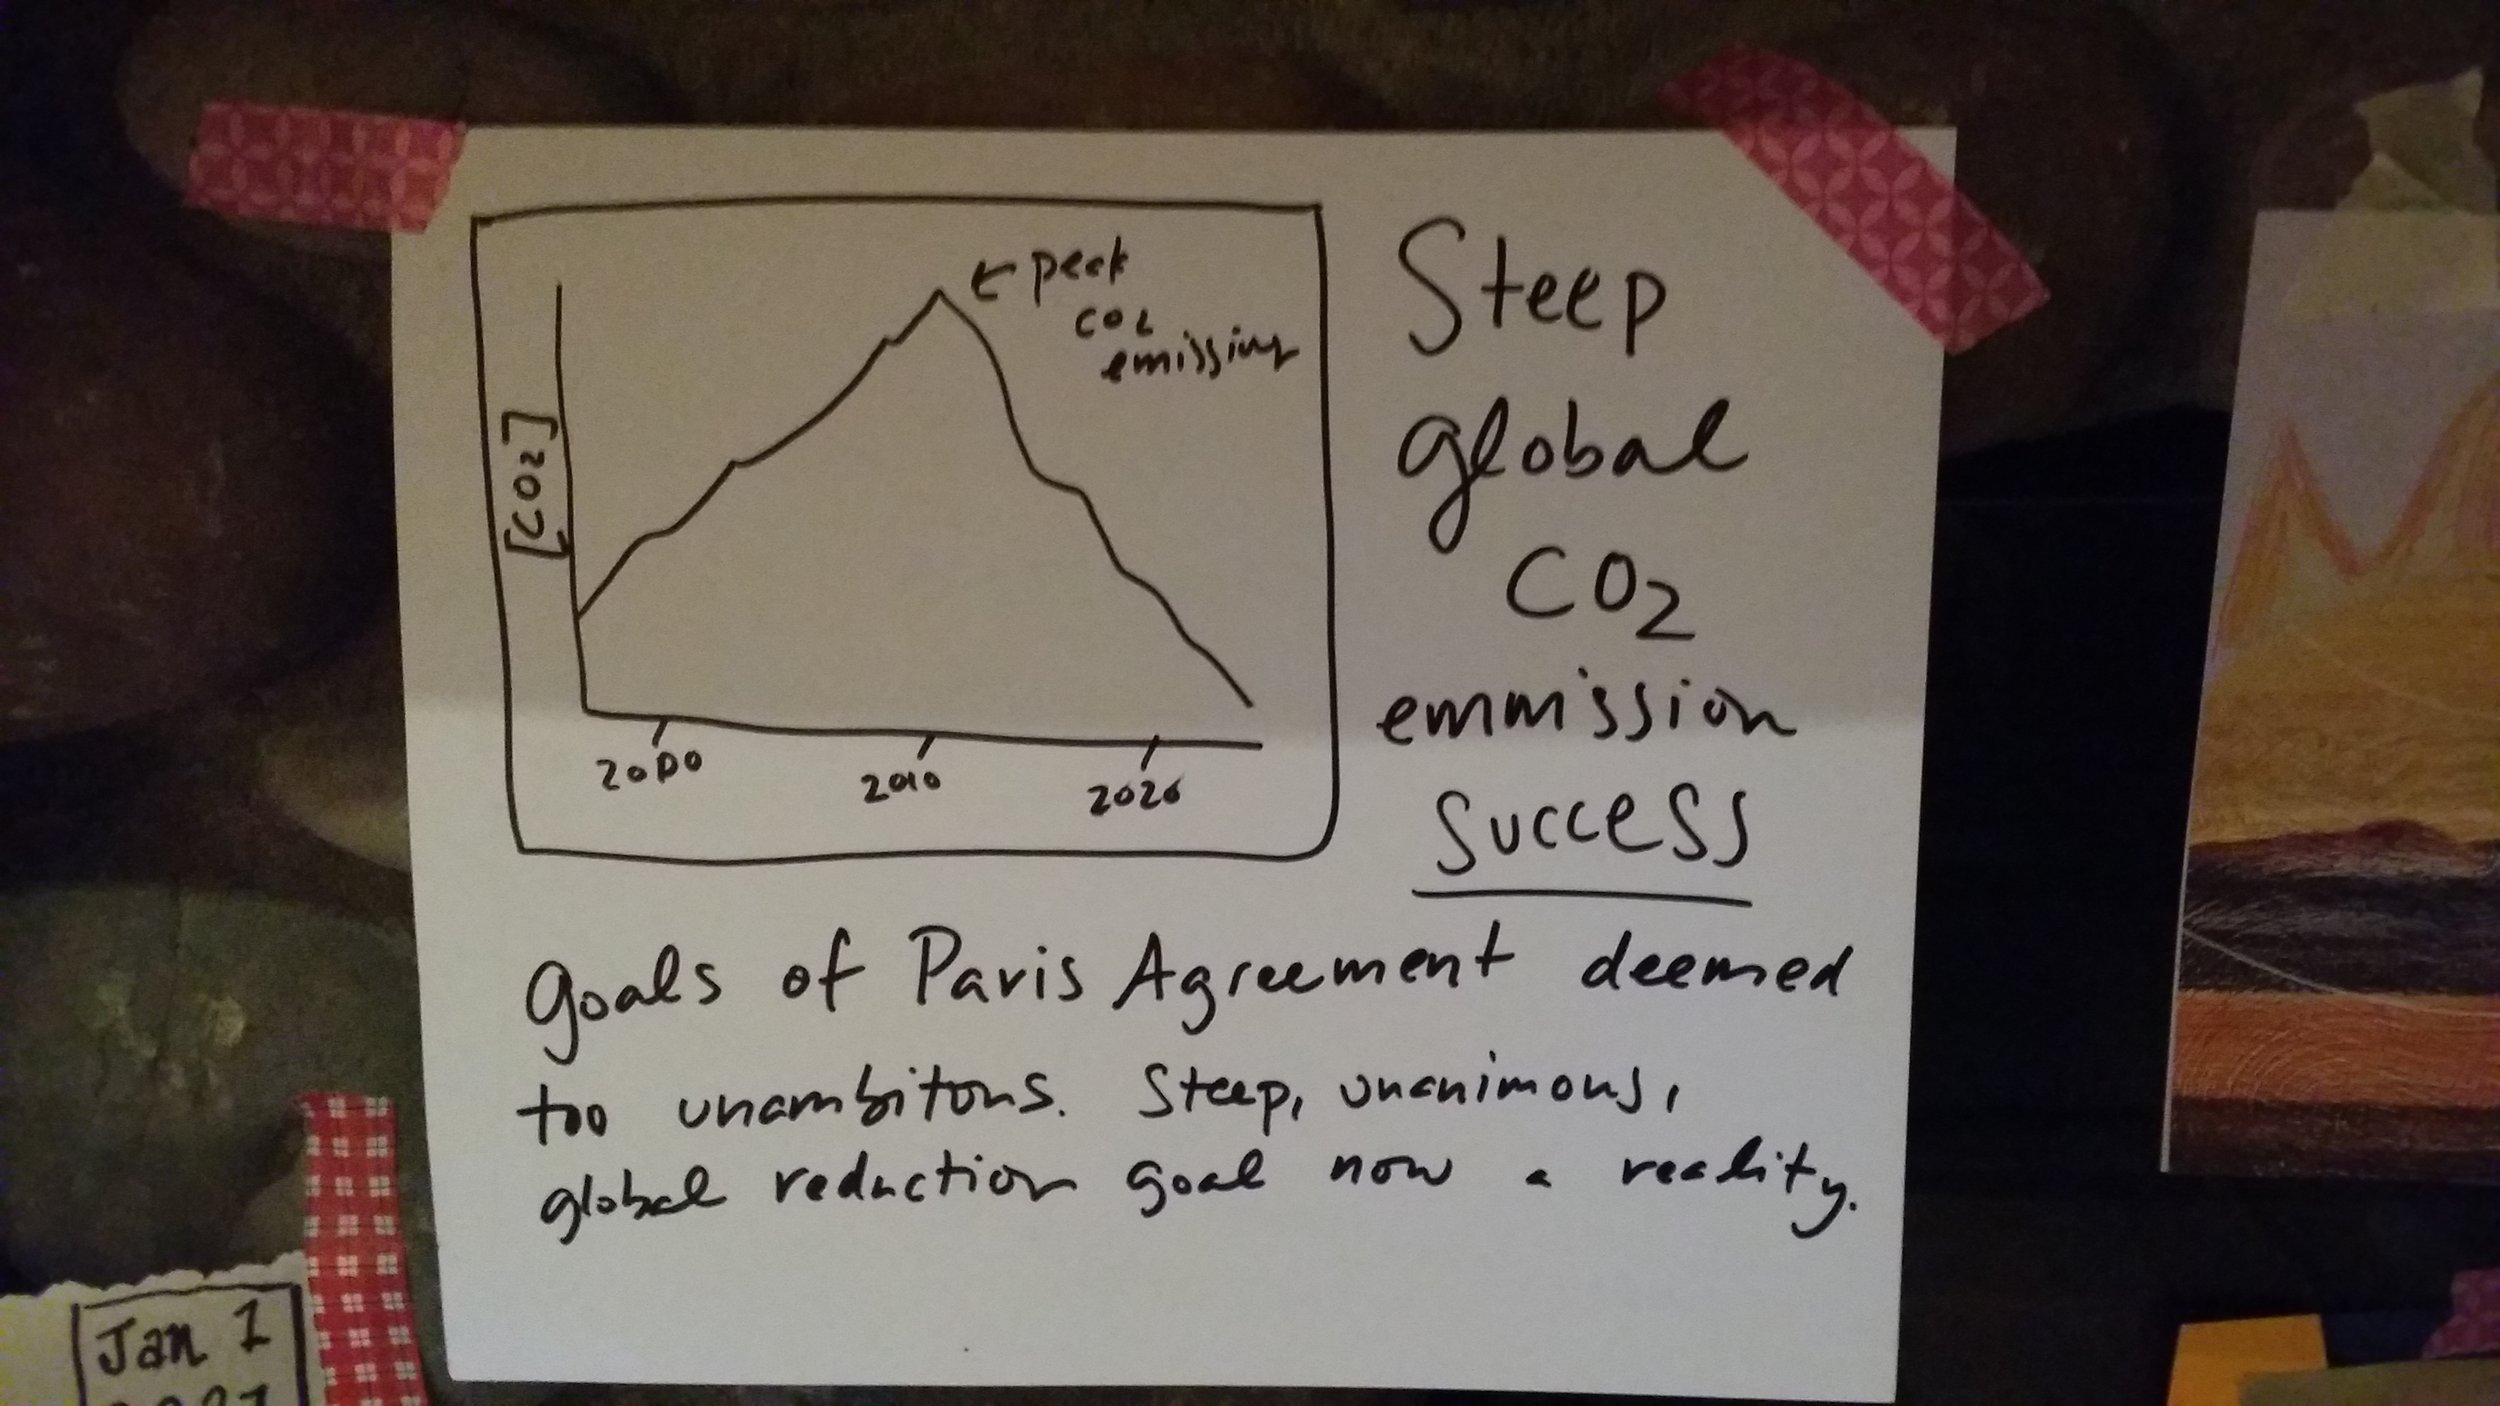 ← peak
CO2
emissing
[CO2]
2000
2010
2020
Steep
global
CO2
emmission
success
goals of Paris Agreement deemed
too unambitons. Steep, unanimous,
global reduction goal now a reality.
Jan 1